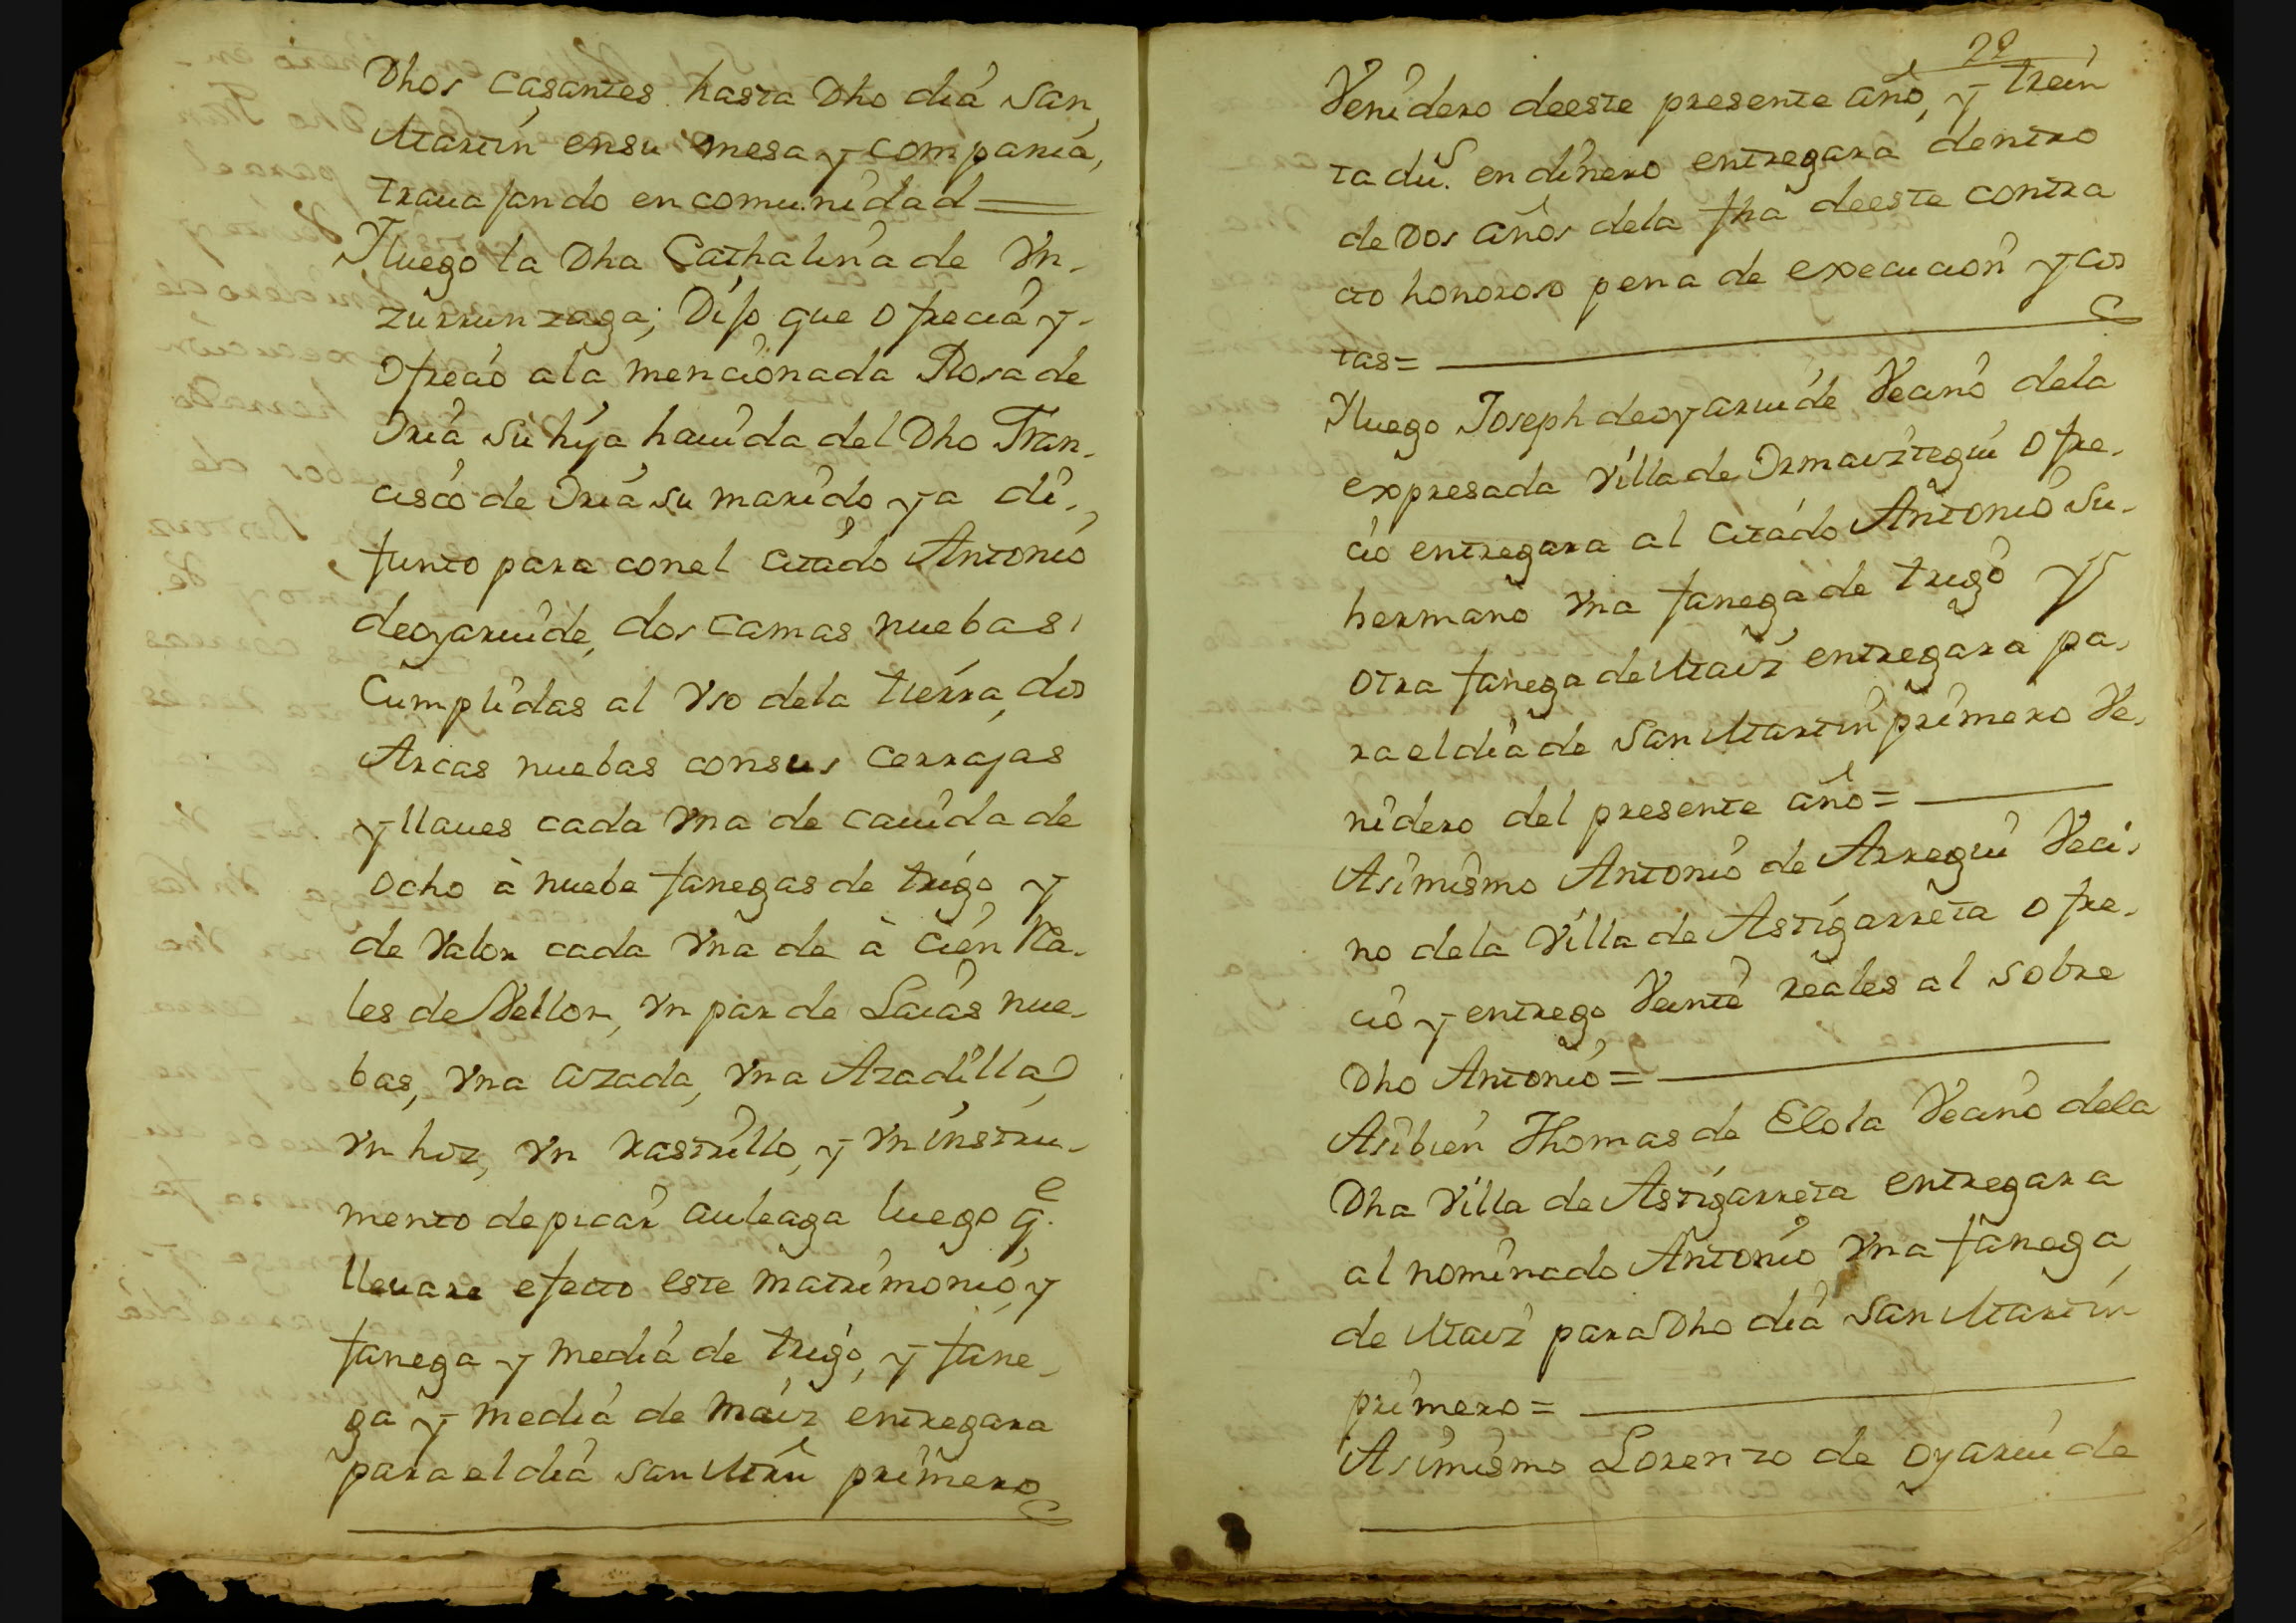 Dhos casantes hasta Dho diá San
Martin ensu mesa y compania,
trauajando en comunidad =
Yluego la Dha Cathalina de Yn-
zurrunzaga; Dijo que ofrecia y-
ofrecio ala mencionada Rosa de
Oria su hija hauida del Dho Fran-
cisco de Oria su marido ya di-
funto para conel citado Antonio
deoyaruide, dos camas nuebas,
Cumplidas al Vso dela tierra, dos
Arcas nuebas consus cerrajas
y llaues cada Vna de cauida de
ocho à nuebe fanegas de trigo, y
de Valor cada Vna de à cien Rea-
les de Vellon, Vn par de Laias nue-
bas, Vna azada, Vna Azadilla,
Vn hoz, Vn rastrillo, y Vn instru-
mento depicar auleaga luego q.e
lleuare efecto este matrimonio, y
fanega y media de trigo, y fane-
ga y media de maiz entregara
para el diá san Mrñ primero
92
Venidero deeste presente año, y trein
ta du.s en dinero entregara dentro
de Dos años dela fha deeste contra
cto honoroso pena de execucion y cos
tas=
Yluego Joseph deoyaruide, Vecino dela
expresada Villa de Ormaiztegui ofre-
cio entregara al citado Antonio Su-
hermano Vna fanega de trigo y
otra fanega de Maiz entregara pa-
ra el diá de San Martin primero Ve-
nidero del presente año=
Asimismo Antonio de Arregui Veci-
no dela Villa de Astigarreta ofre-
cio y entrego Veinte reales al sobre
Dho Antonio=
Asibien Thomas de Elola Vecino dela
Dha Villa de Astigarreta entregara
al nominado Antonio Vna fanega
de Maiz para Dho diá San Martin
primero=
Asimismo Lorenzo de oyaruide